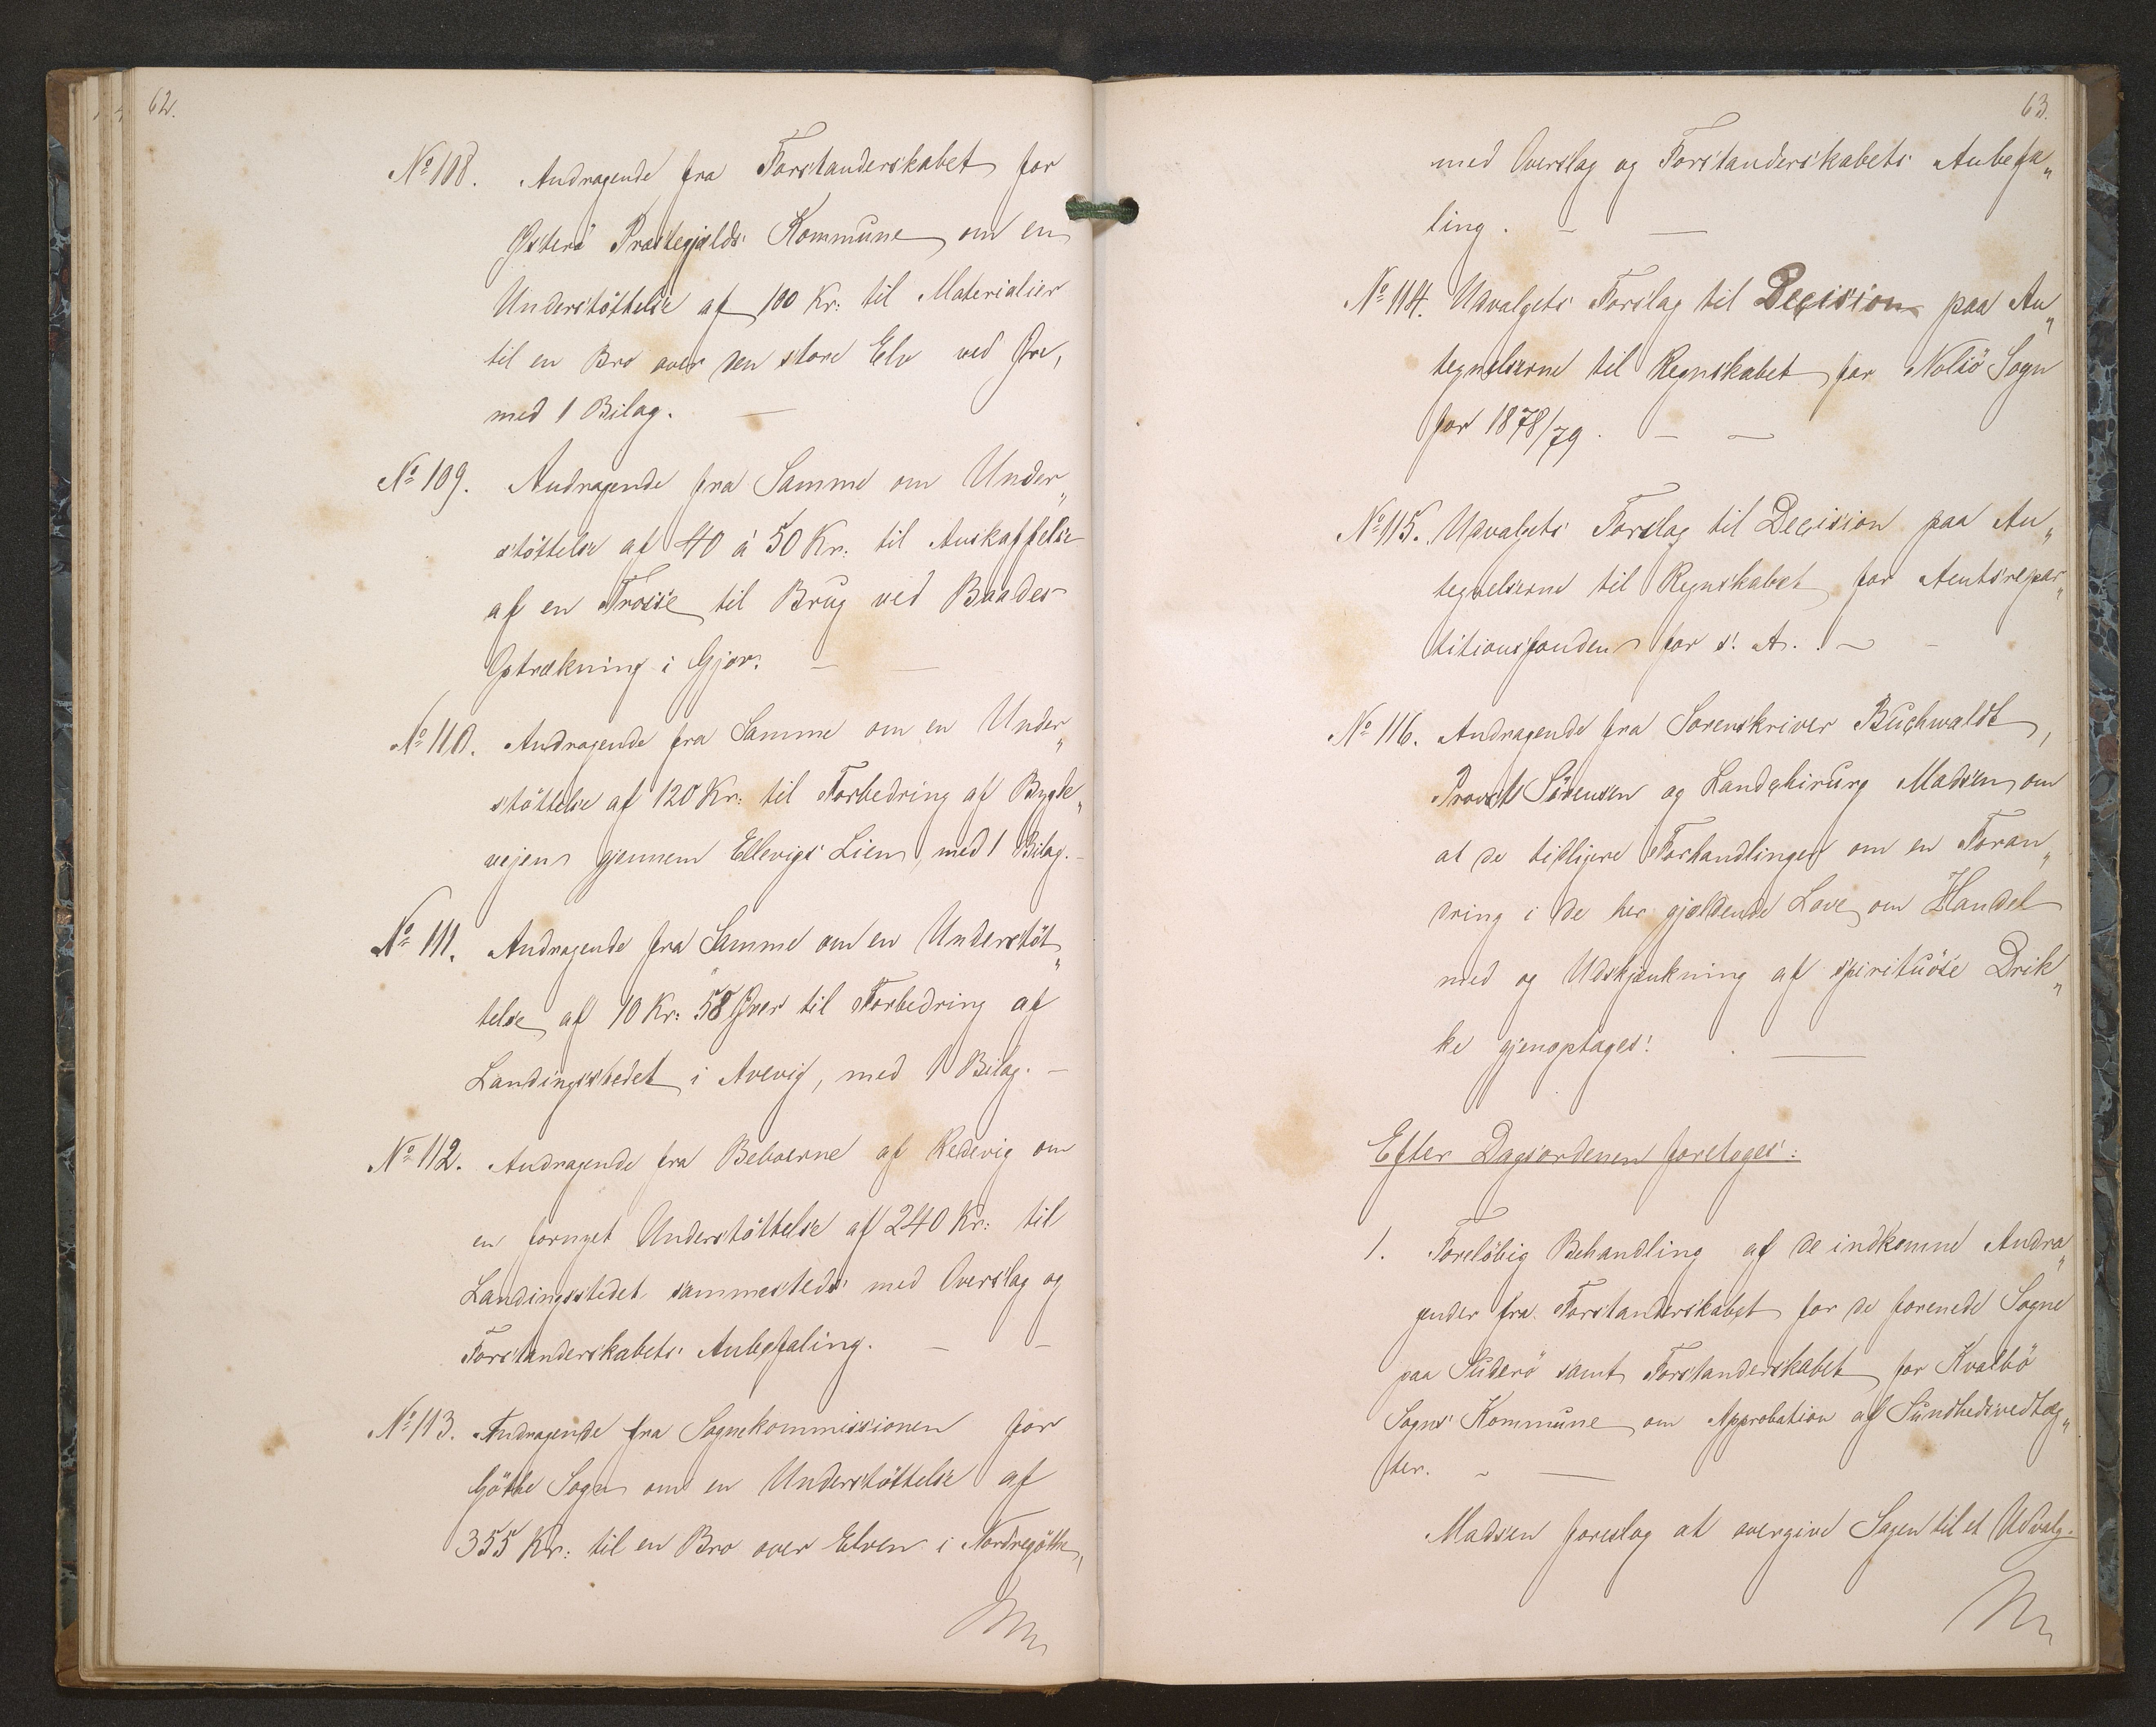 62.
No 108. Andragende fra Forstanderskabet for
Østerö Præstegjælds Kommune om en
Understöttelse af 100 Kr: til Materialier
til en Bro over den store Elv ved Øre,
med 1 Bilag. —
No 109. Andragende fra Samme om Under„
stöttelse af 40 à 50 Kr: til Anskaffelse
af en Trosse til Brug ved Baades
Optrækning i Gjov. — —
No 110. Andragende fra Samme om en Under„
stöttelse af 120 Kr: til Forbedring af Bygde„
vejen gjennem Ellevigs Lien, med 1 Bilag. —
No 111. Andragende fra Samme om en Understöt„
telse af 10 Kr: 58 Øver til Forbedring af
Landingsstedet i Avevig, med 1 Bilag. —
No 112. Andragende fra Beboerne af Redevig om
en fornyet Understöttelse af 240 Kr: til
Landingsstedet sammesteds med Overslag og
Forstanderskabets Anbefaling. — —
No 113. Andragende fra Sognekommissionen for
Göthe Sogn om en Understöttelse af
355 Kr: til en Bro over Elven i Nordregöthe,
63.
med Overslag og Forstanderskabets Anbefa„
ling. — —
No 114. Udvalgets Forslag til Decision paa An„
tegnelserne til Regnskabet for Nolsö Sogn
for 1878/79. — —
No 115. Udvalgets Forslag til Decision paa An„
tegnelserne til Regnskabet for Amtsrepar„
titionsfonden for s. A. — —
No 116. Andragende fra Sorenskriver Buchwaldt,
Provst Sörensen og Landchirurg Madsen om
at de tidligere Forhandlinger om en Foran„
dring i de her gjældende Love om Handel
med og Udskjænkning af spirituöse Drik„
ke gjenoptages. —
Efter Dagsordenen foretoges:
1. Foreløbig Behandling af de indkomne Andra„
gender fra Forstanderskabet for de forenede Sogne
paa Suderö samt Forstanderskabet for Kvalbö
Sogns Kommune om Approbation af Sundhedsvedtæg„
ter. — —
Madsen foreslog at overgive Sagen til et Udvalg.